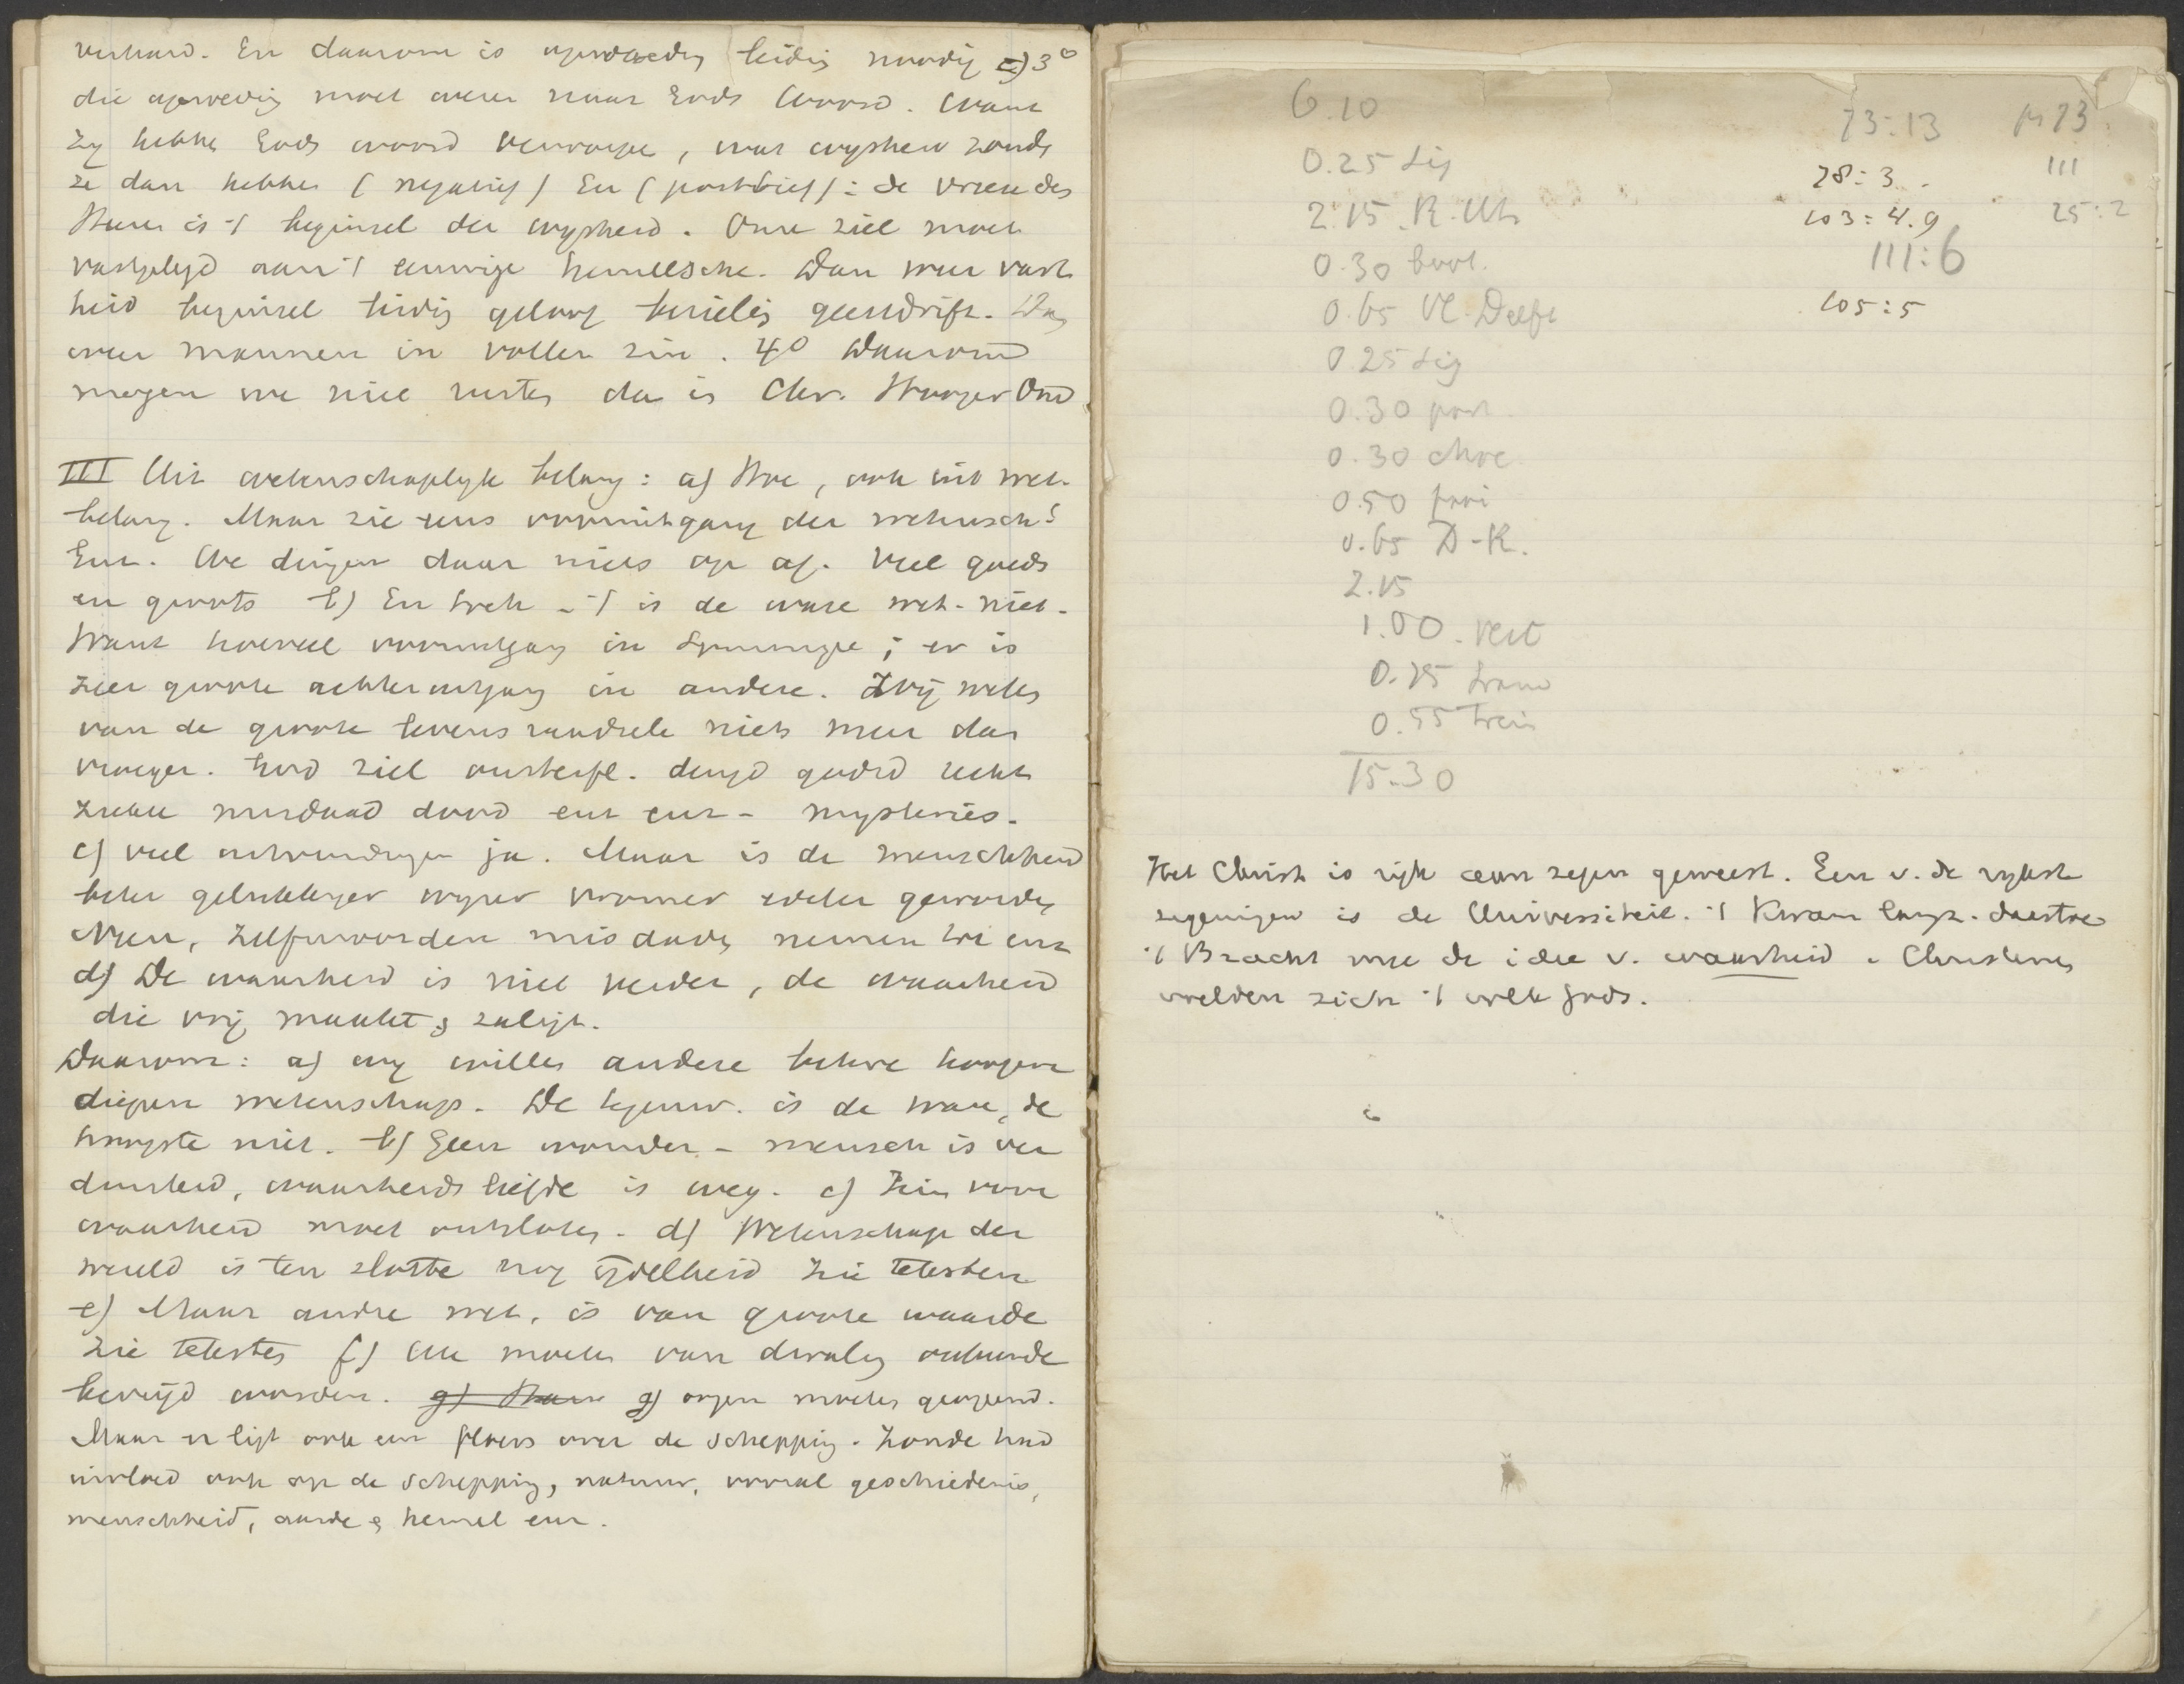 verhard. En daarom is opvoeding leidig noodig c) 3°
die opvoedig moet wezen naar Gods Woord. Want
zy hebben Gods woord verworpen, wat wysheid zoude
ze dan hebben (negatief) En (positief): de vreeze des
Heeren is 't beginsel der wysheid. Onze ziel moet
vastgelegd aan 't eeuwige hemelsche. Dan weer vast
heid beginsel leidig geloof bezielig geestdrift. Dan
weer mannen in vollen zin. 4° Daarom
mogen we niet rusten dan is Chr. Hooger Ond
III Uit wetenschaplyk belang: a) Hoe, ook uit wet.
belang. Maar zie eens vooruitgang der wetensch!
Enz. We dingen daar niets op af. Veel goeds
en groots b) En toch - 't is de ware wet. niet.
Want hoeveel vooruitgang in sommige; er is
zeer groote achteruitgang in andere. Wij weten
van de groote levensraadsele niets meer dan
vroeger. God ziel onsterfl. deugd goed recht
ziekte misdaad dood enz enz - mysteries.
c) veel uitvindingen ja. Maar is de menschheid
beter gelukkiger wyzer vromer edeler geworden
Neen, zelfmoorden misdaden nemen toe enz
d) De waarheid is niet verder, de waarheid
die vrij maakt & zaligt.
Daarom: a) wy willen andere betere hoogere
diepere wetenschap. De tegenw. is de ware, de
hoogste niet. b) Geen wonder - mensch is ver
duisterd, waarheidsliefde is weg. c) Zin voor
waarheid moet ontsloten. d) Wetenschap der
wereld is ten slotte nog ijdelheid zie teksten
e) Maar andre wet. is van groote waarde
zie teksten f) We moeten van dwaling zonde
bevrijd worden. g) Maar g) oogen moeten geopend.
Maar er ligt ook een floers over de schepping. Zonde had
invloed ook op de schepping, natuur, vooral geschiedenis,
menschheid, aarde & hemel enz.
6.10
0.25 sig
2.15 R. Utr
0.30 boot.
0.65 Vl. Delft
0.25 sig
0.30 port.
0.30 choc
0.50 fooi
0.65 D-R.
2.15
1.00. vert
0.25 tram
0.55 trein
15.30
73:13 ps 73.
28:3. 111
103:4.9 25:2
111:6
105:5
Het Christ is rijk aan zegen geweest. Een v. de rykste
zegeningen is de Universiteit. 't Kwam langz. daartoe
't Bracht mee de idee v. waarheid. Christenen
voelden zich 't volk Gods.